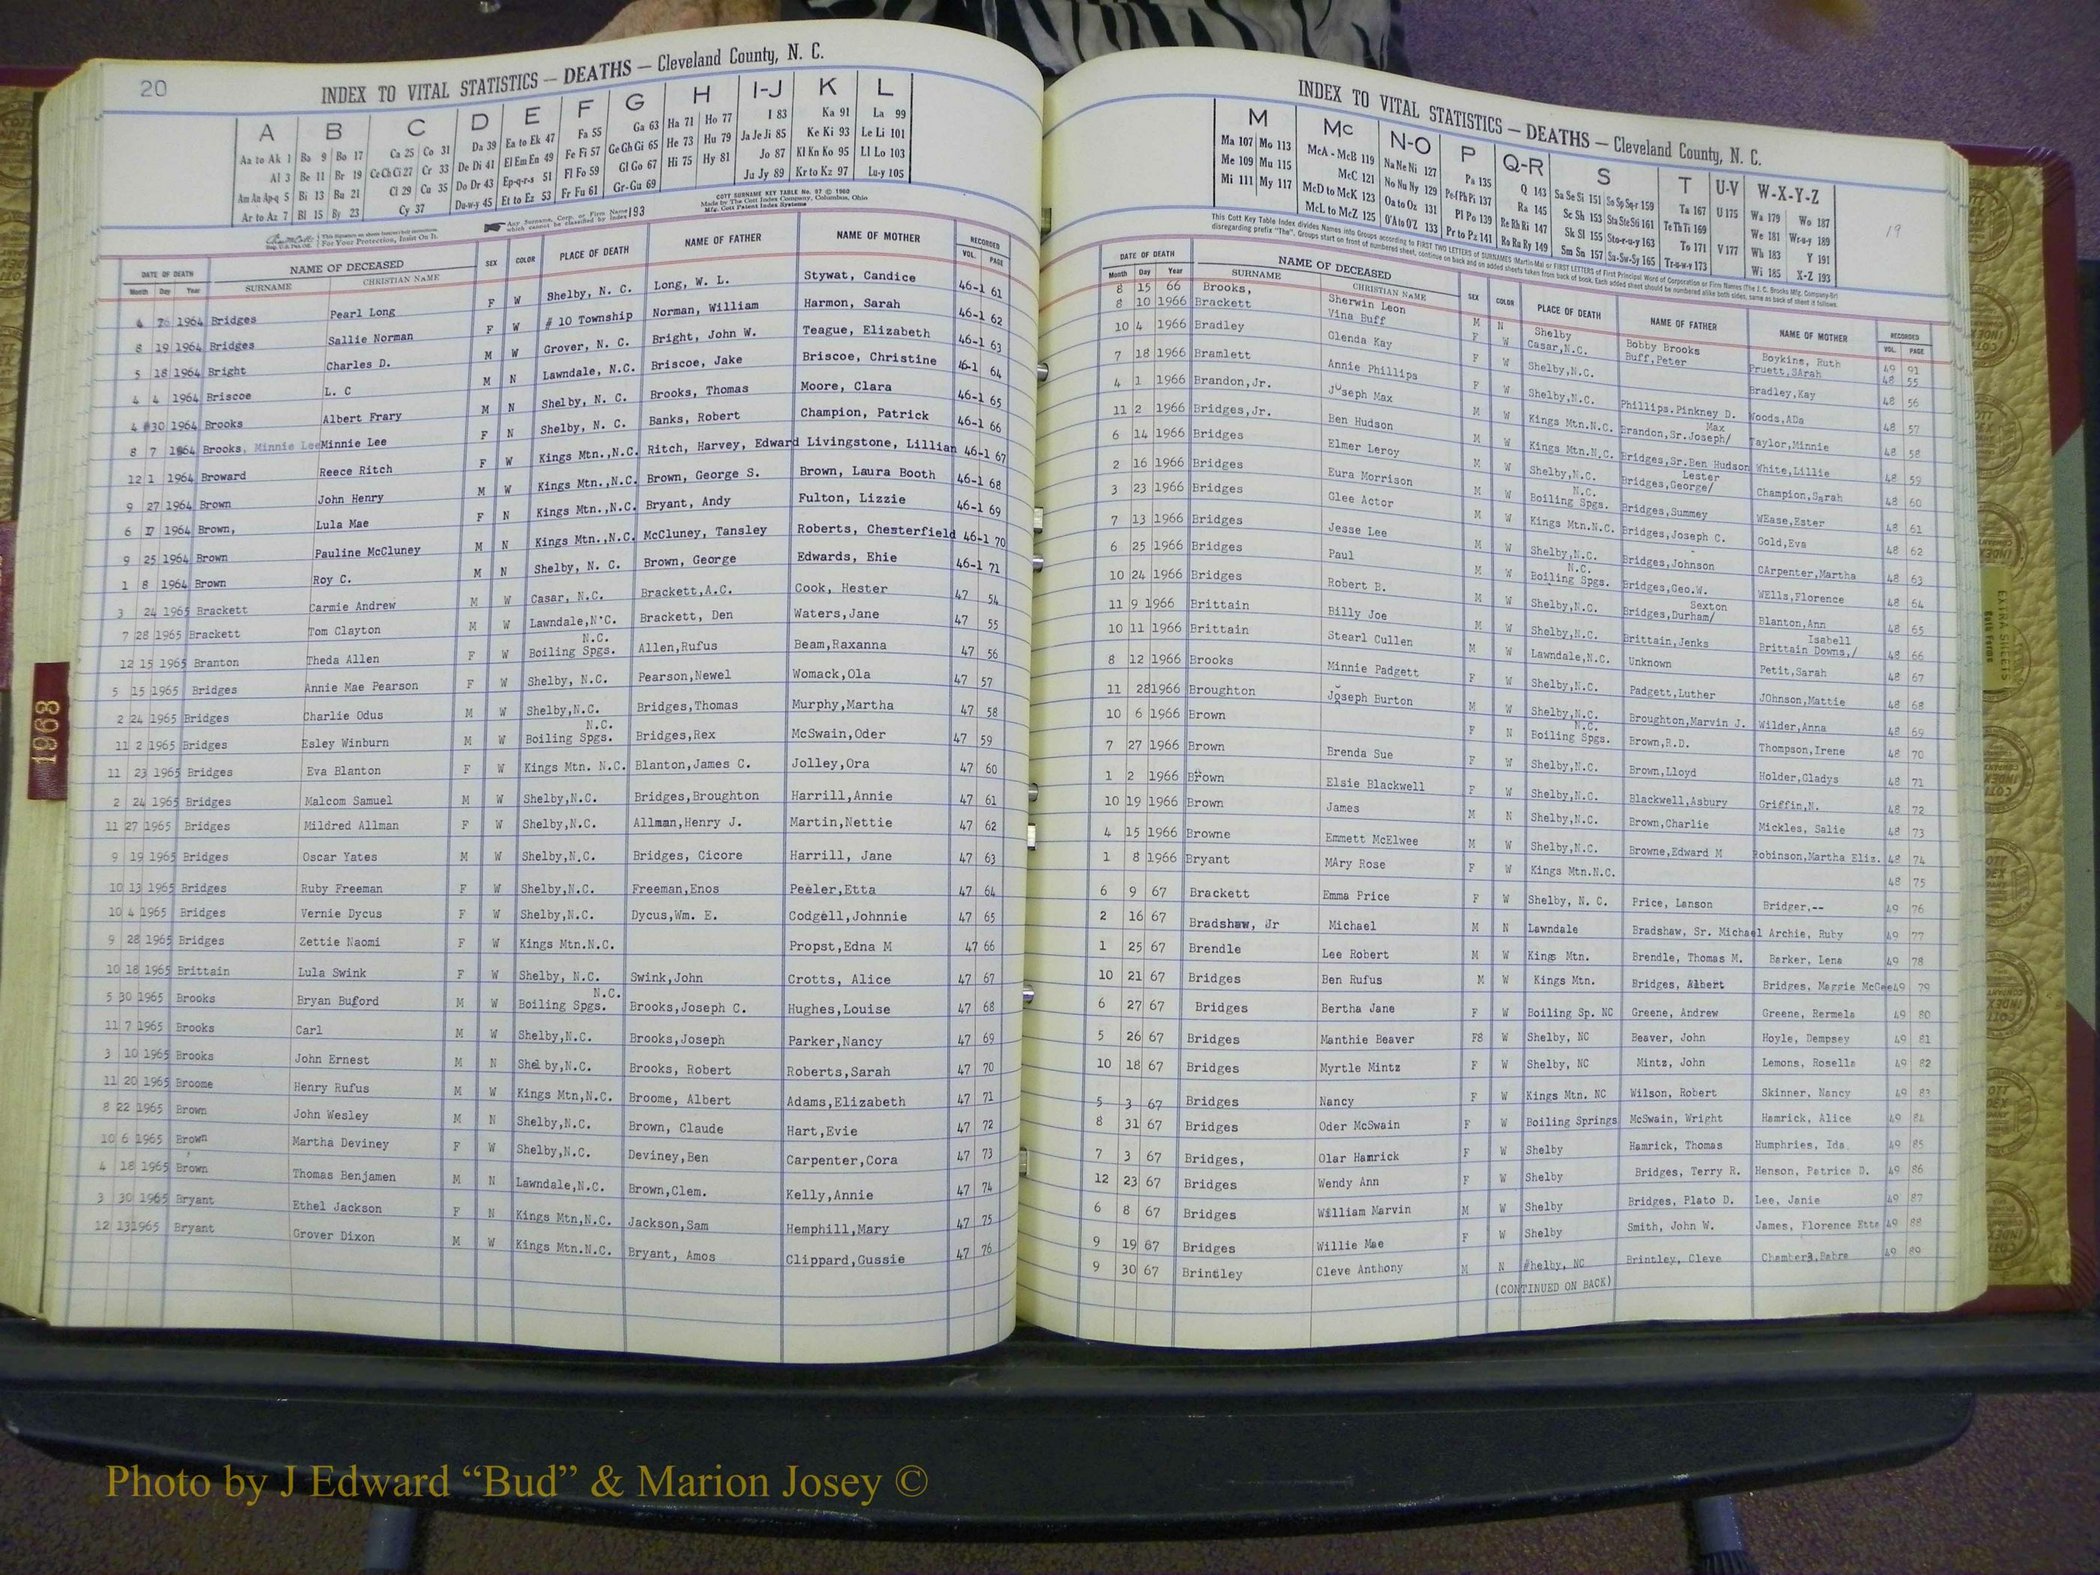 20
INDEX TO VITAL STATISTICS — DEATHS — Cleveland County, N. C.
A B C D E F G H I-J K L
Aa to Ak 1 Ba 9 Bo 17 Ca 25 Co 31 Da 39 Ea to Ek 47 Fa 55 Ga 63 Ha 71 Ho 77 I 83 Ka 91 La 99
Al 3 Be 11 Br 19 Ce Ch Ci 27 Cr 33 De Di 41 El Em En 49 Fe Fi 57 Ge Gh Gi 65 He 73 Hu 79 Ja Je Ji 85 Ke Ki 93 Le Li 101
Am An Ap-q 5 Bi 13 Bu 21 Cl 29 Cu 35 Do Dr 43 Ep-q-r-s 51 Fl Fo 59 Gl Go 67 Hi 75 Hy 81 Jo 87 Kl Kn Ko 95 Ll Lo 103
Ar to Az 7 Bl 15 By 23 Cy 37 Du-w-y 45 Et to Ez 53 Fr Fu 61 Gr-Gu 69 Ju Jy 89 Kr to Kz 97 Lu-y 105
Any Surname, Corp. or Firm Name which cannot be classified by Index 193
COTT SURNAME KEY TABLE No. 97 © 1960
Made by The Cott Index Company, Columbus, Ohio
Mfg. Cott Patent Index Systems
For Your Protection, Insist On It.
DATE OF DEATH NAME OF DECEASED SEX COLOR PLACE OF DEATH NAME OF FATHER NAME OF MOTHER RECORDED
Month Day Year SURNAME CHRISTIAN NAME VOL. PAGE
4 26 1964 Bridges Pearl Long F W Shelby, N. C. Long, W. L. Stywat, Candice 46-1 61
8 19 1964 Bridges Sallie Norman F W # 10 Township Norman, William Harmon, Sarah 46-1 62
5 18 1964 Bright Charles D. M W Grover, N. C. Bright, John W. Teague, Elizabeth 46-1 63
4 4 1964 Briscoe L. C M N Lawndale, N.C. Briscoe, Jake Briscoe, Christine 46-1 64
4 30 1964 Brooks Albert Frary M N Shelby, N. C. Brooks, Thomas Moore, Clara 46-1 65
8 7 1964 Brooks, Minnie Lee Minnie Lee F N Shelby, N. C. Banks, Robert Champion, Patrick 46-1 66
12 1 1964 Broward Reece Ritch F W Kings Mtn.,N.C. Ritch, Harvey, Edward Livingstone, Lillian 46-1 67
9 27 1964 Brown John Henry M W Kings Mtn.,N.C. Brown, George S. Brown, Laura Booth 46-1 68
6 17 1964 Brown, Lula Mae F N Kings Mtn.,N.C. Bryant, Andy Fulton, Lizzie 46-1 69
9 25 1964 Brown Pauline McCluney M N Kings Mtn.,N.C. McCluney, Tansley Roberts, Chesterfield 46-1 70
1 8 1964 Brown Roy C. M N Shelby, N. C. Brown, George Edwards, Ehie 46-1 71
3 24 1965 Brackett Carmie Andrew M W Casar, N.C. Brackett,A.C. Cook, Hester 47 54
7 28 1965 Brackett Tom Clayton M W Lawndale,N.C. Brackett, Den Waters,Jane 47 55
12 15 1965 Branton Theda Allen F W Boiling Spgs. N.C. Allen,Rufus Beam,Raxanna 47 56
5 15 1965 Bridges Annie Mae Pearson F W Shelby, N.C. Pearson,Newel Womack,Ola 47 57
2 24 1965 Bridges Charlie Odus M W Shelby,N.C. Bridges,Thomas Murphy,Martha 47 58
11 2 1965 Bridges Esley Winburn M W Boiling Spgs. N.C. Bridges,Rex McSwain,Oder 47 59
11 23 1965 Bridges Eva Blanton F W Kings Mtn. N.C. Blanton,James C. Jolley,Ora 47 60
2 24 1965 Bridges Malcom Samuel M W Shelby,N.C. Bridges,Broughton Harrill,Annie 47 61
11 27 1965 Bridges Mildred Allman F W Shelby,N.C. Allman,Henry J. Martin,Nettie 47 62
9 19 1965 Bridges Oscar Yates M W Shelby,N.C. Bridges, Cicore Harrill, Jane 47 63
10 13 1965 Bridges Ruby Freeman F W Shelby,N.C. Freeman,Enos Peeler,Etta 47 64
10 4 1965 Bridges Vernie Dycus F W Shelby,N.C. Dycus,Wm. E. Codgell,Johnnie 47 65
9 28 1965 Bridges Zettie Naomi F W Kings Mtn.N.C. Propst,Edna M 47 66
10 18 1965 Brittain Lula Swink F W Shelby, N.C. Swink,John Crotts, Alice 47 67
5 30 1965 Brooks Bryan Buford M W Boiling Spgs. N.C. Brooks,Joseph C. Hughes,Louise 47 68
11 7 1965 Brooks Carl M W Shelby,N.C. Brooks,Joseph Parker,Nancy 47 69
3 10 1965 Brooks John Ernest M N Shelby,N.C. Brooks, Robert Roberts,Sarah 47 70
11 20 1965 Broome Henry Rufus M W Kings Mtn,N.C. Broome, Albert Adams,Elizabeth 47 71
8 22 1965 Brown John Wesley M N Shelby,N.C. Brown, Claude Hart,Evie 47 72
10 6 1965 Brown Martha Deviney F W Shelby,N.C. Deviney,Ben Carpenter,Cora 47 73
4 18 1965 Brown Thomas Benjamen M N Lawndale,N.C. Brown,Clem. Kelly,Annie 47 74
3 30 1965 Bryant Ethel Jackson F N Kings Mtn,N.C. Jackson,Sam Hemphill,Mary 47 75
12 13 1965 Bryant Grover Dixon M W Kings Mtn.N.C. Bryant, Amos Clippard,Gussie 47 76
1968
INDEX TO VITAL STATISTICS — DEATHS — Cleveland County, N. C.
M Mc N-O P Q-R S T U-V W-X-Y-Z
Ma 107 Mo 113 McA - McB 119 Na Ne Ni 127 Pa 135 Q 143 Sa Se Si 151 So Sp Sq-r 159 Ta 167 U 175 Wa 179 Wo 187
Me 109 Mu 115 McC 121 No Nu Ny 129 Pe Pf Ph Pi 137 Ra 145 Sc Sh 153 Sta Ste Sti 161 Te Th Ti 169 We 181 Wr-u-y 189
Mi 111 My 117 McD to McK 123 Oa to Oz 131 Pl Po 139 Re Rh Ri 147 Sk Sl 155 Sto-r-u-y 163 To 171 V 177 Wh 183 Y 191
McL to McZ 125 O'A to O'Z 133 Pr to Pz 141 Ro Ru Ry 149 Sm Sn 157 Su-Sw-Sy 165 Tr-u-w-y 173 Wi 185 X-Z 193
19
This Cott Key Table Index divides Names into Groups according to FIRST TWO LETTERS of SURNAMES (Martin-Ma) or FIRST LETTERS of First Principal Word of Corporation or Firm Names (The J. C. Brooks Mfg. Company-Br)
disregarding prefix "The". Groups start on front of numbered sheet, continue on back and on added sheets taken from back of book. Each added sheet should be numbered alike both sides, same as back of sheet it follows.
DATE OF DEATH NAME OF DECEASED SEX COLOR PLACE OF DEATH NAME OF FATHER NAME OF MOTHER RECORDED
Month Day Year SURNAME CHRISTIAN NAME VOL. PAGE
8 15 66 Brooks, Sherwin Leon M N Shelby Bobby Brooks Boykins, Ruth 49 91
8 10 1966 Brackett Vina Buff F W Casar,N.C. Buff,Peter Pruett,SArah 48 55
10 4 1966 Bradley Glenda Kay F W Shelby,N.C. Bradley,Kay 48 56
7 18 1966 Bramlett Annie Phillips F W Shelby,N.C. Phillips.Pinkney D. Woods,ADa 48 57
4 1 1966 Brandon,Jr. Joseph Max M W Kings Mtn.N.C. Brandon,Sr.Joseph/ Max Taylor,Minnie 48 58
11 2 1966 Bridges,Jr. Ben Hudson M W Kings Mtn.N.C. Bridges,Sr.Ben Hudson White,Lillie 48 59
6 14 1966 Bridges Elmer Leroy M W Shelby,N.C. Bridges,George/ Lester Champion,Sarah 48 60
2 16 1966 Bridges Eura Morrison M W Boiling Spgs. N.C. Bridges,Summey WEase,Ester 48 61
3 23 1966 Bridges Glee Actor M W Kings Mtn.N.C. Bridges,Joseph C. Gold,Eva 48 62
7 13 1966 Bridges Jesse Lee M W Shelby,N.C. Bridges,Johnson CArpenter,Martha 48 63
6 25 1966 Bridges Paul M W Boiling Spgs. N.C. Bridges,Geo.W. WElls,Florence 48 64
10 24 1966 Bridges Robert B. M W Shelby,N.C. Bridges,Durham/ Sexton Blanton,Ann 48 65
11 9 1966 Brittain Billy Joe M W Shelby,N.C. Brittain,Jenks Brittain Downs,/ Isabell 48 66
10 11 1966 Brittain Stearl Cullen M W Lawndale,N.C. Unknown Petit,Sarah 48 67
8 12 1966 Brooks Minnie Padgett F W Shelby,N.C. Padgett,Luther JOhnson,Mattie 48 68
11 28 1966 Broughton Joseph Burton M W Shelby,N.C. Broughton,Marvin J. Wilder,Anna 48 69
10 6 1966 Brown F N Boiling Spgs. N.C. Brown,R.D. Thompson,Irene 48 70
7 27 1966 Brown Brenda Sue F W Shelby,N.C. Brown,Lloyd Holder,Gladys 48 71
1 2 1966 Brown Elsie Blackwell F W Shelby,N.C. Blackwell,Asbury Griffin,N. 48 72
10 19 1966 Brown James M N Shelby,N.C. Brown,Charlie Mickles, Salie 48 73
4 15 1966 Browne Emmett McElwee M W Shelby,N.C. Browne,Edward M Robinson,Martha Eliz. 48 74
1 8 1966 Bryant MAry Rose F W Kings Mtn.N.C. 48 75
6 9 67 Brackett Emma Price F W Shelby, N. C. Price, Lanson Bridger,-- 49 76
2 16 67 Bradshaw, Jr Michael M N Lawndale Bradshaw, Sr. Michael Archie, Ruby 49 77
1 25 67 Brendle Lee Robert M W Kings Mtn. Brendle, Thomas M. Barker, Lena 49 78
10 21 67 Bridges Ben Rufus M W Kings Mtn. Bridges, Albert Bridges, Maggie McGee 49 79
6 27 67 Bridges Bertha Jane F W Boiling Sp. NC Greene, Andrew Greene, Rermela 49 80
5 26 67 Bridges Manthie Beaver F8 W Shelby, NC Beaver, John Hoyle, Dempsey 49 81
10 18 67 Bridges Myrtle Mintz F W Shelby, NC Mintz, John Lemons, Rosella 49 82
5 3 67 Bridges Nancy F W Kings Mtn. NC Wilson, Robert Skinner, Nancy 49 83
8 31 67 Bridges Oder McSwain F W Boiling Springs McSwain, Wright Hamrick, Alice 49 84
7 3 67 Bridges, Olar Hamrick F W Shelby Hamrick, Thomas Humphries, Ida 49 85
12 23 67 Bridges Wendy Ann F W Shelby Bridges, Terry R. Henson, Patrica D. 49 86
6 8 67 Bridges William Marvin M W Shelby Bridges, Plato D. Lee, Janie 49 87
9 19 67 Bridges Willie Mae F W Shelby Smith, John W. James, Florence Etta 49 88
9 30 67 Brintley Cleve Anthony M N Shelby, NC Brintley, Cleve Chambers, 49 89
(CONTINUED ON BACK)
EXTRA SHEETS
Photo by J Edward “Bud” & Marion Josey ©